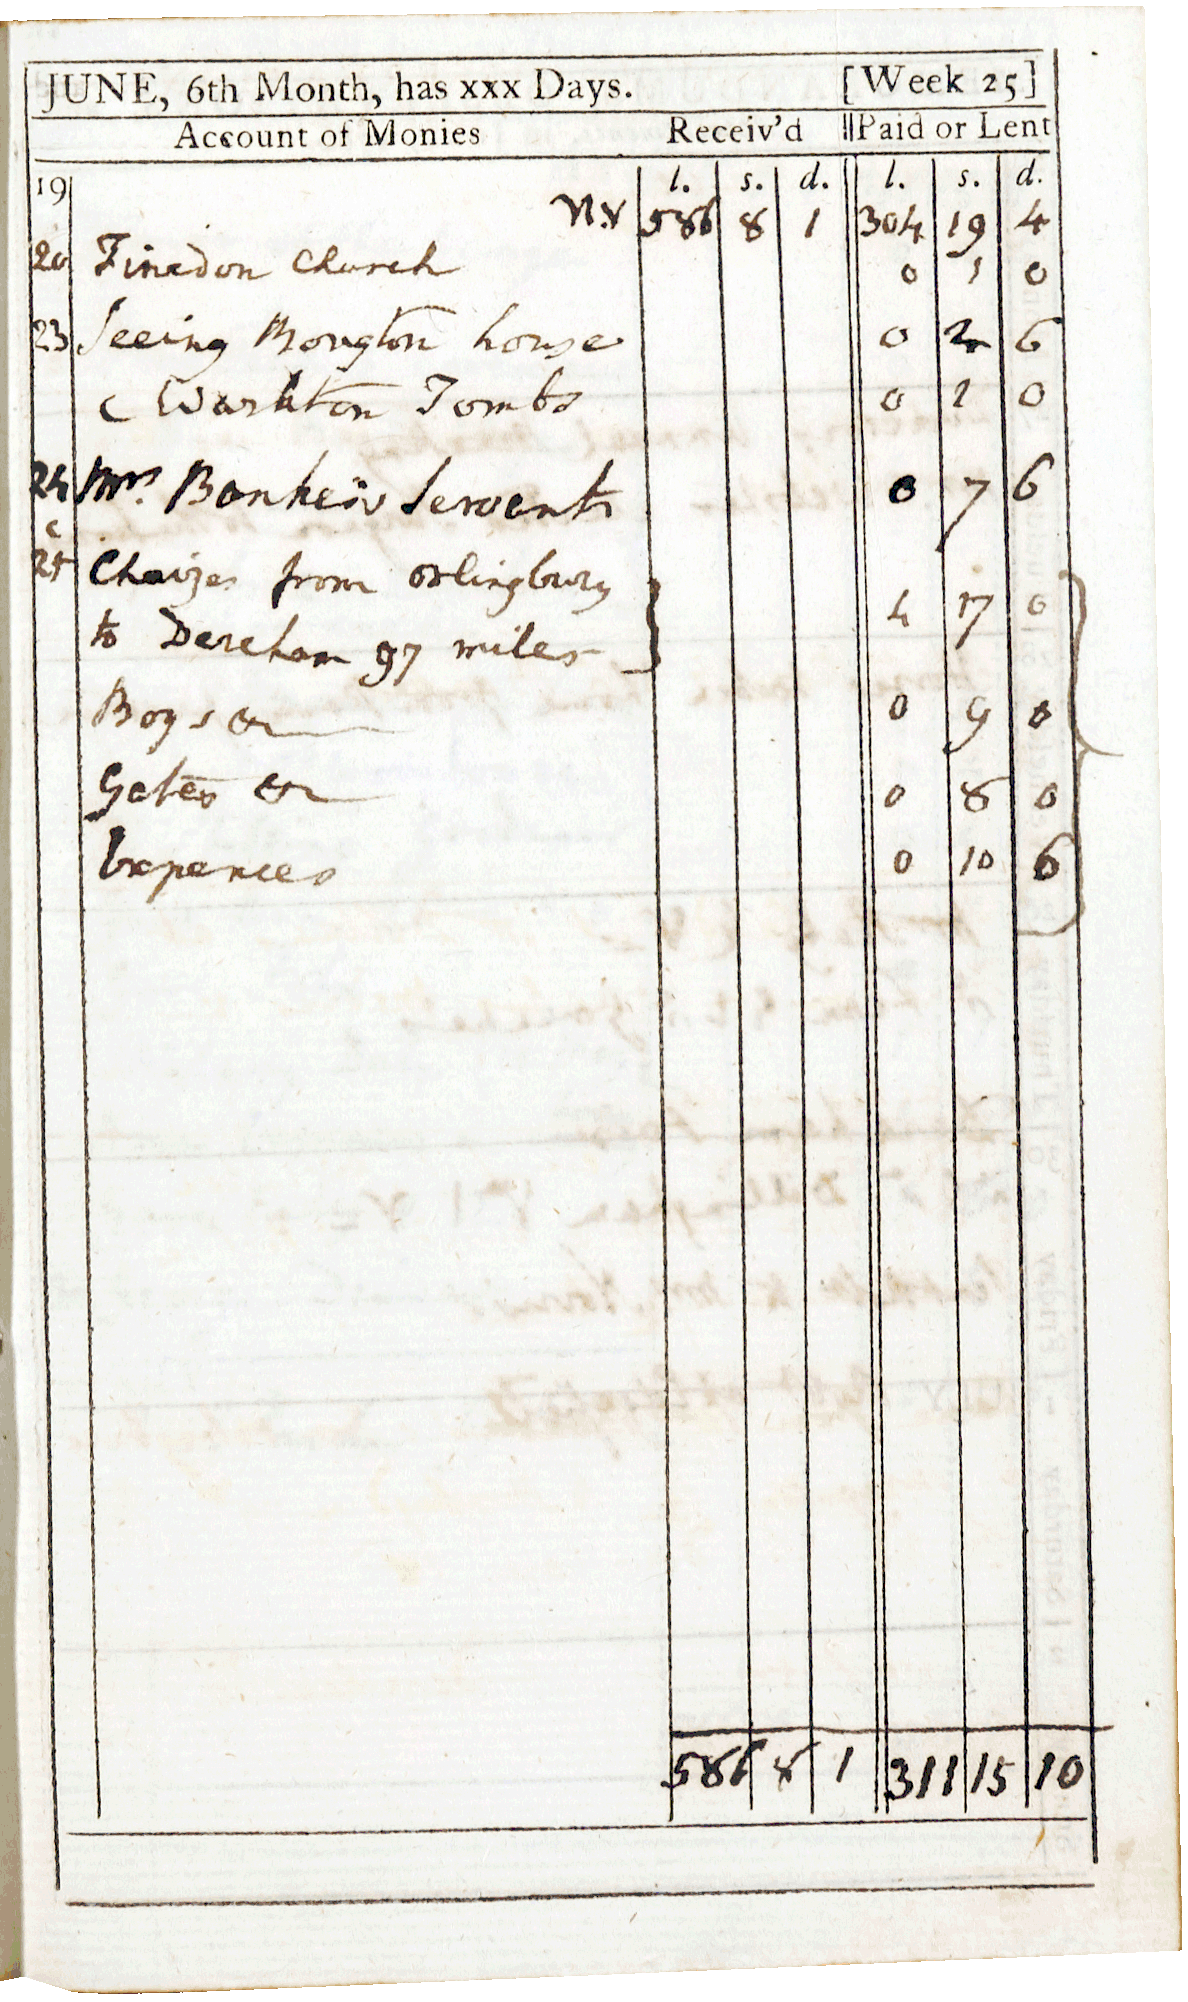 JUNE, 6th Month, has xxx Days. [Week 25]
Account of Monies Receiv'd Paid or Lent
19 l. s. d. l. s. d.
586 8 1 304 19 4
20 Finedon Church 0 1 0
23 Seeing Bougton house 0 2 6
& Warkton Tombs 0 1 0
24 Mrs. Servants 0 7 6
&
25 Chaizes from Orlingbury
to Dereham 97 miles 4 17 0
Boys &c 0 9 0
Gates &c 0 8 0
Expences 0 10 6
586 8 1 311 15 10